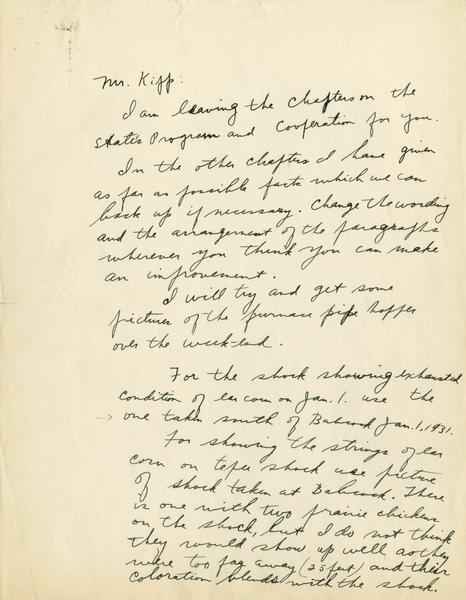 Mr. Kipp:
I am leaving the chapters on the
States Program and Cooperation for you.
In the other chapters I have given
as far as possible facts which we can
back up if necessary. Change the wording
and the arrangement of the paragraphs
wherever you think you can make
an improvement.
I will try and get some
pictures of the furnace pipe hopper
over the week-end.
For the shock showing exhausted
condition of ear corn on Jan. 1. use the
one taken south of Babcock Jan. 1, 1931.
For showing the strings of ear
corn on tepee shock use picture
of shock taken at Babcock. There
is one with two prairie chickens
on the shock, but I do not think
they would show up well as they
were too far away (25 feet) and their
coloration blends with the shock.